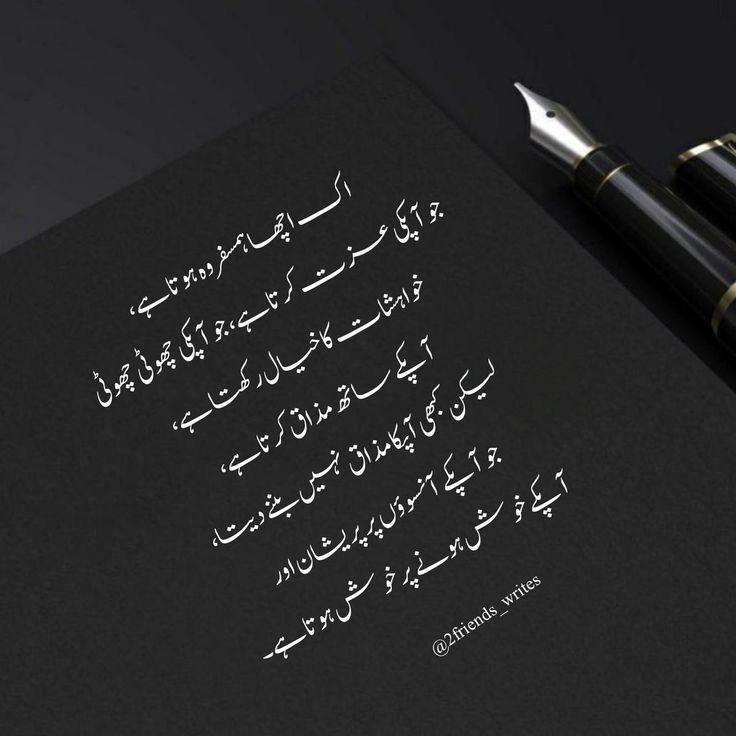 اک اچھا ہمسفر وہ ہوتا ہے،
جو آپکی عزت کرتا ہے، جو آپکی چھوٹی چھوٹی
خواہشات کا خیال رکھتا ہے،
آپکے ساتھ مذاق کرتا ہے،
لیکن کبھی آپکا مذاق نہیں بننے دیتا،
جو آپکے آنسوؤں پر پریشان اور
آپکے خوش ہونے پر خوش ہوتا ہے۔
@2friends_writes